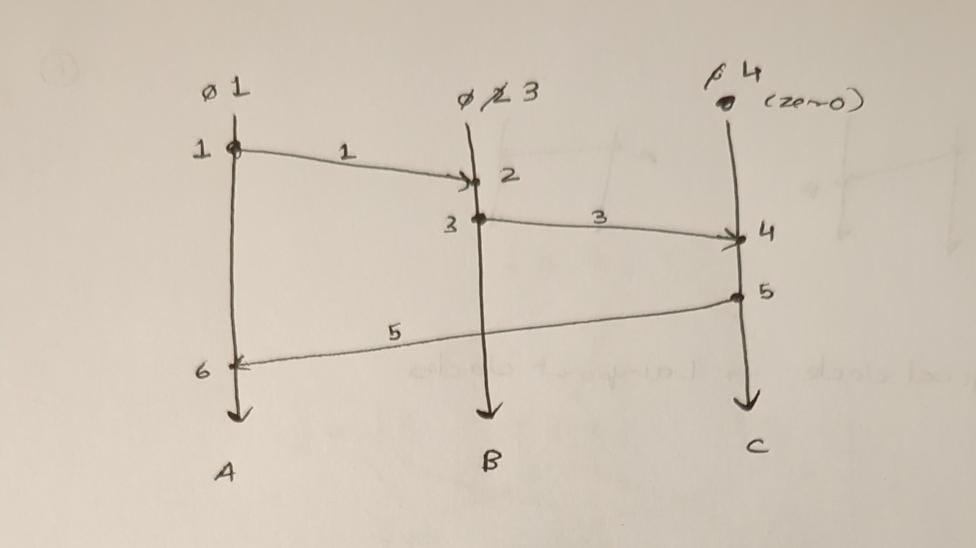 ø 1
ø 2 3
ø 4
(zero)
1
1
2
3
3
4
5
5
6
A
B
C